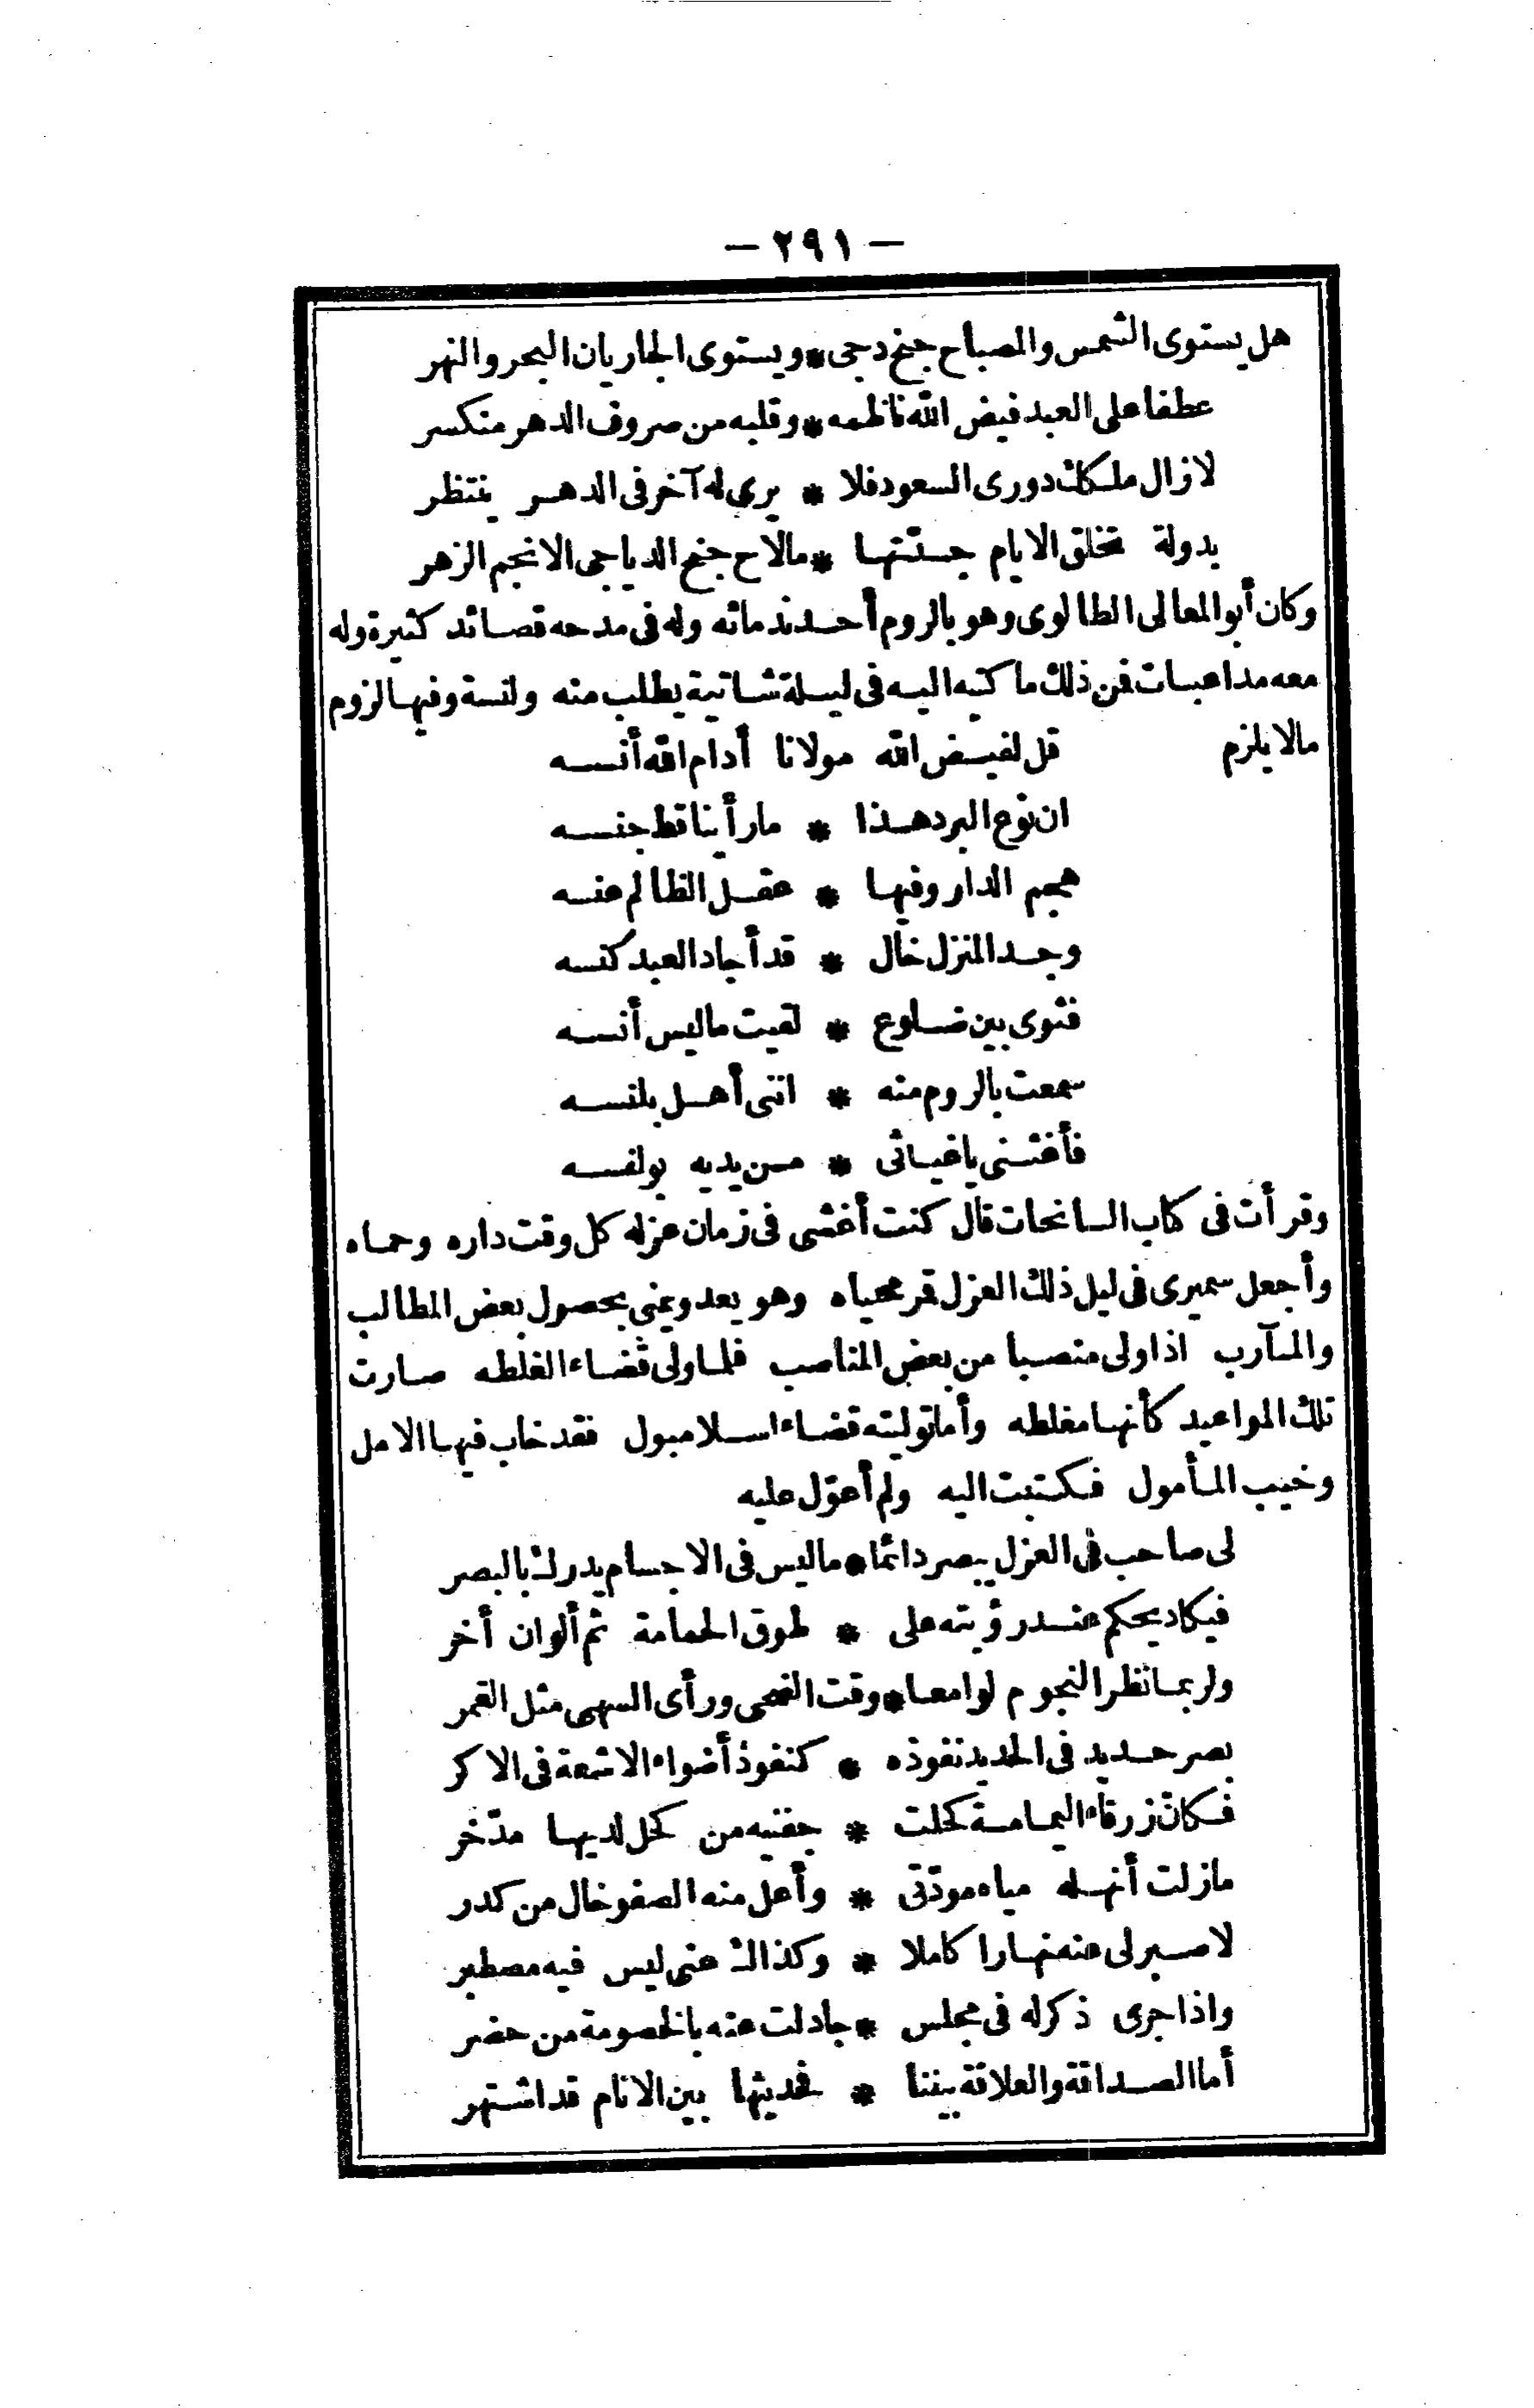 — ٢٩١ —
هل يستوى الشمس والمصباح جنح دجى * ويستوى الجاريان البحر والنهر
عطفا على العبد فيض الله ناظمه * وقلبه من صروف الدهر منكسر
لا زال ملكك دورى السعود فلا * يرى له آخر فى الدهر ينتظر
بدولة تخلق الايام جدّتها * مالاح جنح الدياجى الانجم الزهر
وكان أبو المعالى الطالوى وهو بالروم أحد ندمائه وله فى مدحه قصائد كثيرة وله
معه مداعبات فمن ذلك ما كتبه اليه فى ليلة شاتية يطلب منه ولنسة وفيها لزوم
مالا يلزم قل لفيض الله مولانا أدام الله أنسه
ان نوع البرد هذا * ما رأينا قط جنسه
هجم الدار وفيها * عقل الظالم عنسه
وجد المنزل خال * قد أجاد العبد كنسه
فثوى بين ضلوع * لقيت ماليس أنسه
سمعت بالروم منه * اننى أهل بلنسه
فأغثنى ياغياثى * من يديه بولنسه
وقرأت فى كتاب السانحات قال كنت أغشى فى زمان عزله كل وقت داره وحماه
وأجعل سميرى فى ليل ذلك العزل قمر محياه وهو يعد ويمنى بحصول بعض المطالب
والمآرب اذا ولى منصبا من بعض المناصب فلما ولى قضاء الغلطه صارت
تلك المواعيد كأنها مغلطه وأما توليته قضاء اسلامبول فقد خاب فيها الامل
وخيب المأمول فكتبت اليه ولم أعوّل عليه
لى صاحب فى العزل يبصر دائما * ماليس فى الاجسام يدرك بالبصر
فيكاد يحكم عند رؤيته على * طوق الحمامة ثم ألوان أخر
ولربما نظر النجوم لوامعا * وقت الضحى ورأى السهى مثل القمر
بصر حديد فى الحديد نفوذه * كنفوذ أضواء الاشعة فى الاكر
فكانّ زرقاء اليمامة كحلت * جفنيه من كحل لديها مدّخر
مازلت أنهله مياه مودّتى * وأعل منه الصفو خال من كدر
لا صبر لى عنه نهارا كاملا * وكذاك عنى ليس فيه مصطبر
واذا جرى ذكر له فى مجلس * جادلت عنه بالخصومة من حضر
أما الصداقة والعلاقة بيننا * فحديثها بين الانام قد اشتهر